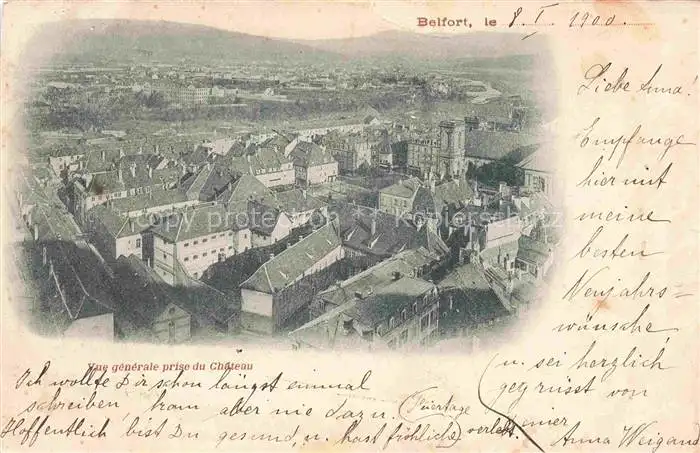 Belfort, le 8. I. 1900.
Liebe Anna.
Empfange
hier mit
meine
besten
Neujahrs-
wünsche,
u. sei herzlich
gegrüsst von
einer
Anna Weigand
Vue générale prise du Château
Ich wollte Dir schon längst einmal
schreiben, kam aber nie dazu.
Hoffentlich bist Du gesund, u. hast fröhliche (Feiertage) verlebt.